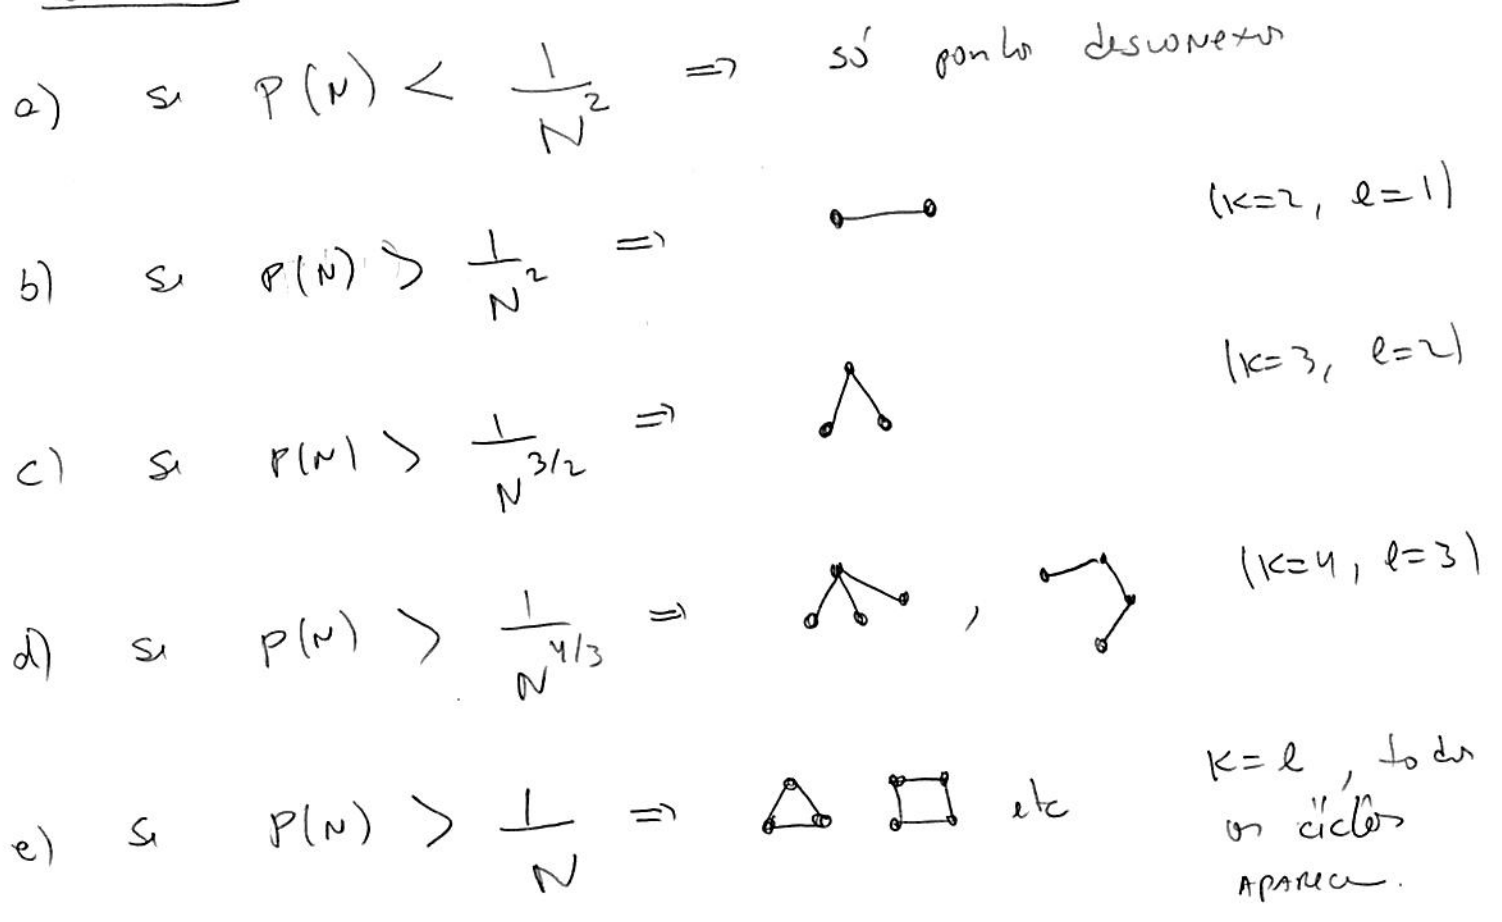 a) se P(N) < 1/N² ⇒ só pontos desconexos
b) se P(N) > 1/N² ⇒ (k=2, l=1)
c) se P(N) > 1/N^{3/2} ⇒ (k=3, l=2)
d) se P(N) > 1/N^{4/3} ⇒ , (k=4, l=3)
e) se P(N) > 1/N ⇒ etc k=l, todos
os "ciclos"
APARECE.